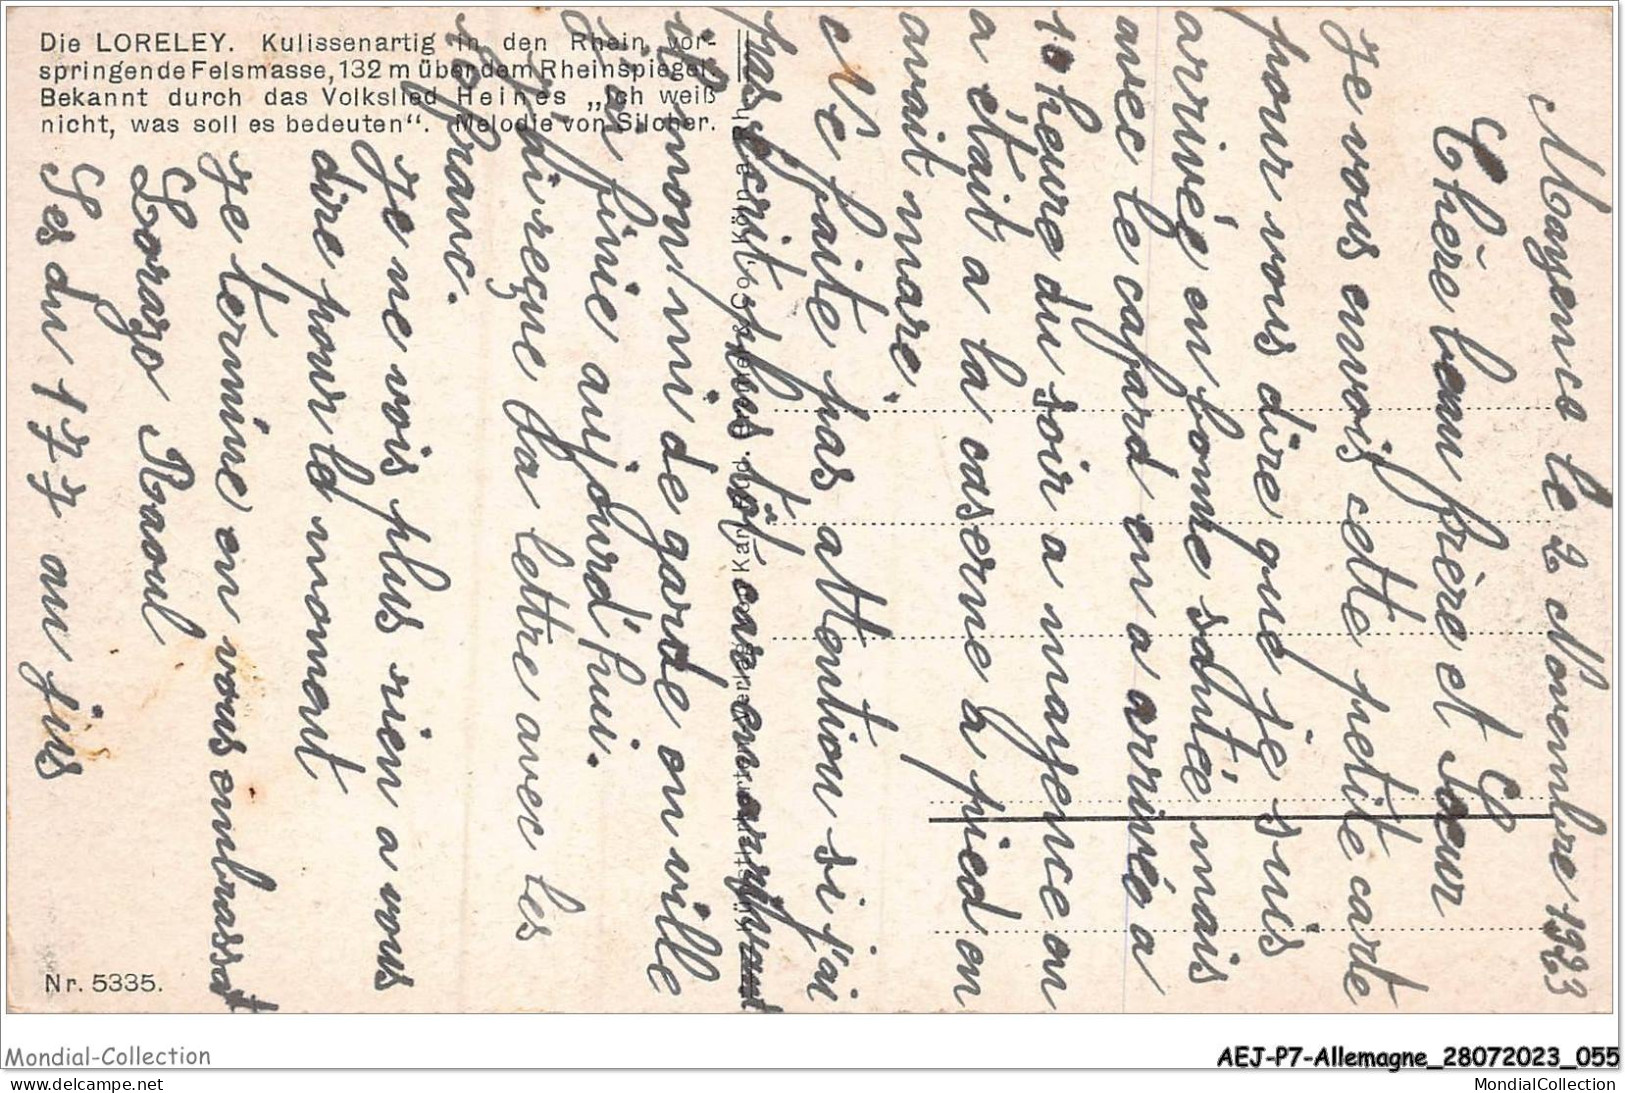 Die LORELEY. Kulissenartig in den Rhein vor-
springende Felsmasse, 132 m über dem Rheinspiegel.
Bekannt durch das Volkslied Heines „Ich weiß
nicht, was soll es bedeuten“. Melodie von Silcher.
Mayence le 2 Novembre 1923
Chère beau frère et Soeur
Je vous envois cette petite carte
pour vous dire que je suis
arrivée en bonne santée mais
avec le cafard en a arrivée a
10 heure du soir a mayence on
a était a la caserne a pied en
avait mare.
Ne faite pas attention si j'ai
pas écrit plus tôt car en arrivant
mon mi de garde on ville
finie aujourd'hui.
reçue la lettre avec les
franc.
Je ne vois plus rien a vous
dire pour le moment
Je termine en vous embrassat
Lorazo Raoul
Les du 177 au jus
Nr. 5335.
Mondial-Collection
AEJ-P7-Allemagne_28072023_055
illustre-collection.delcampe.net
MondialCollection